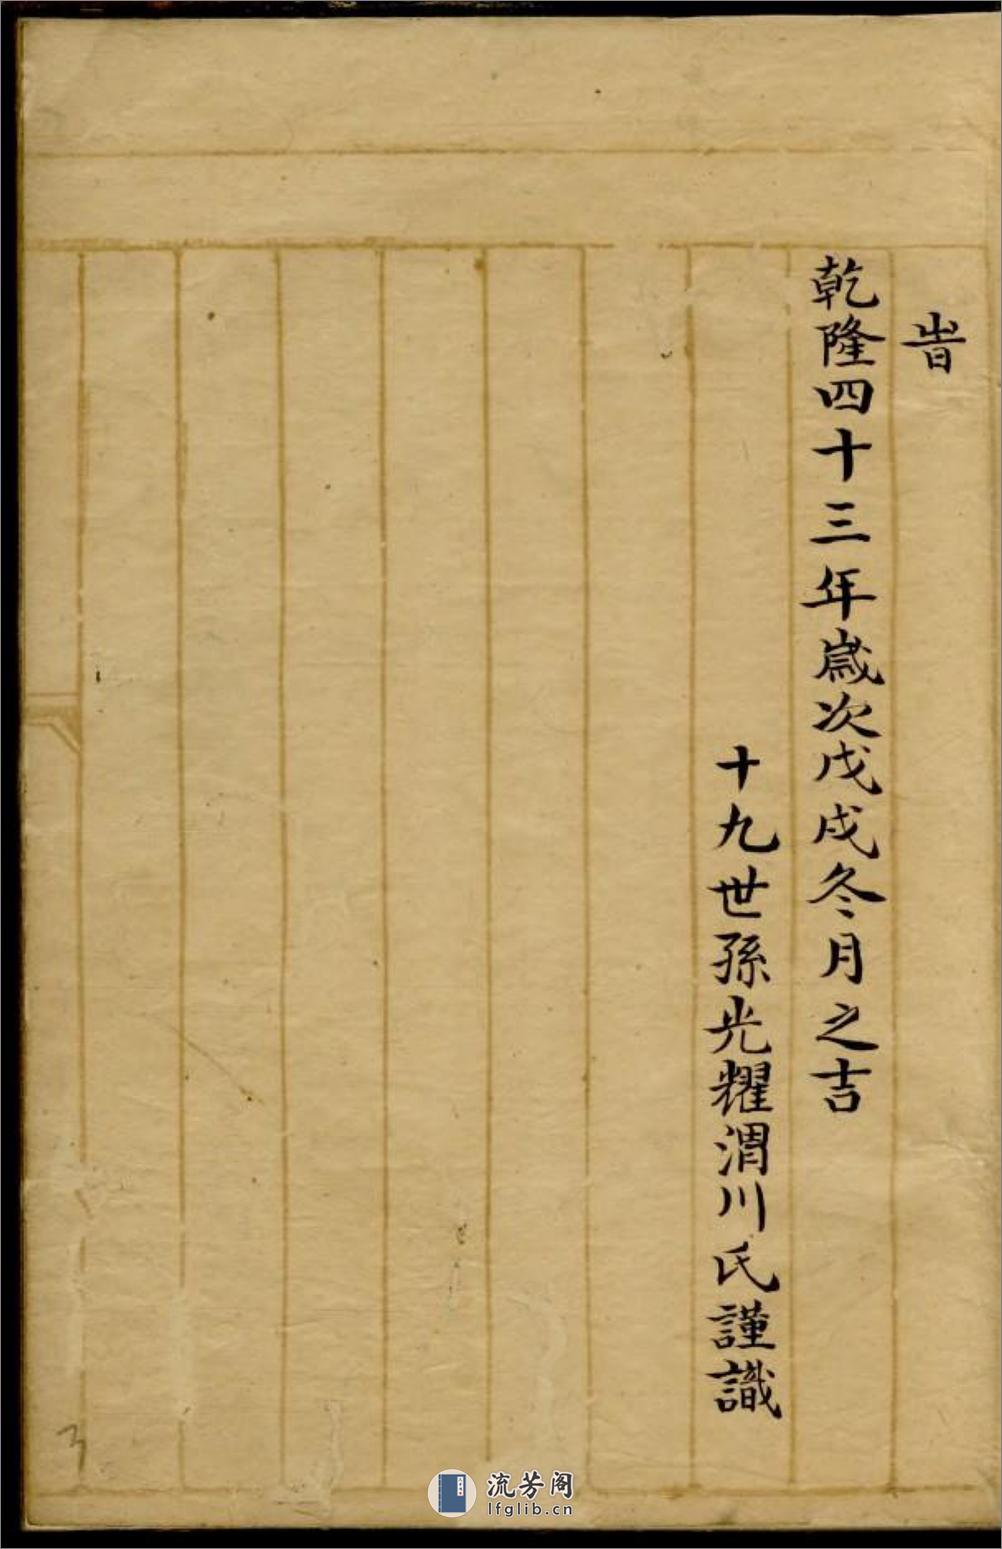 旹
乾隆四十三年歲次戊戌冬月之吉
十九世孫光耀渭川氏謹識
3
流芳阁
lfglib.cn